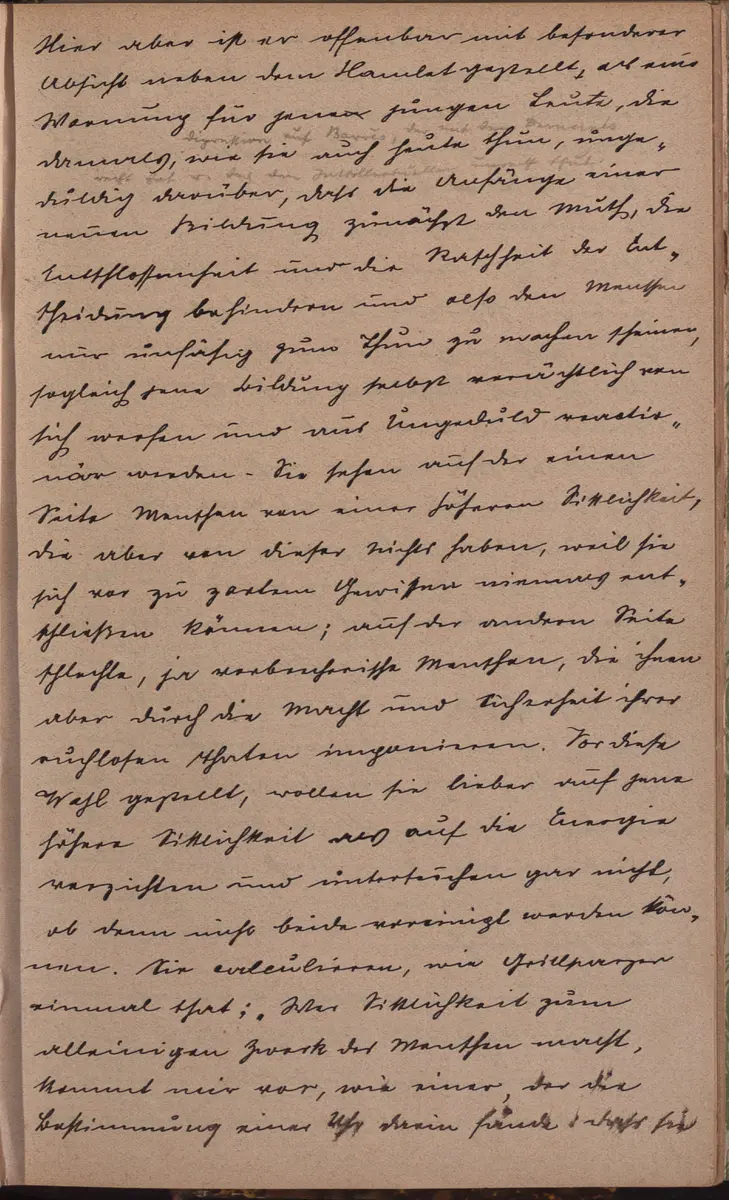 Hier aber ist er offenbar mit besonderer
Absicht neben dem Hamlet gestellt, als eine
Warnung für jene jungen Leute, die
auf Barrès, der
damals, wie sie auch heute thun, unge-
duldig darüber, dass die Anfänge einer
neuen Bildung zunächst den Muth, die
Entschlossenheit und die Raschheit der Ent-
scheidung behindern und also den Menschen
nur unfähig zum Thun zu machen scheinen,
sogleich jene Bildung selbst verächtlich von
sich werfen und aus Ungeduld reactio-
när werden. Sie sehen auf der einen
Seite Menschen von einer höheren Sittlichkeit,
die aber von dieser nichts haben, weil sie
sich vor zu zartem Gewissen niemals ent-
schließen können; auf der andern Seite
schlechte, ja verbrecherische Menschen, die ihnen
aber durch die Macht und Sicherheit ihrer
ruchlosen Thaten imponieren. Vor diese
Wahl gestellt, wollen sie lieber auf jene
höhere Sittlichkeit als auf die Energie
verzichten und untersuchen gar nicht,
ob denn nicht beide vereinigt werden kön-
nen. Sie calculieren, wie Grillparzer
einmal that: „Wer Sittlichkeit zum
alleinigen Zweck des Menschen macht,
kommt mir vor, wie einer, der die
Bestimmung einer Uhr darin fände, dass sie